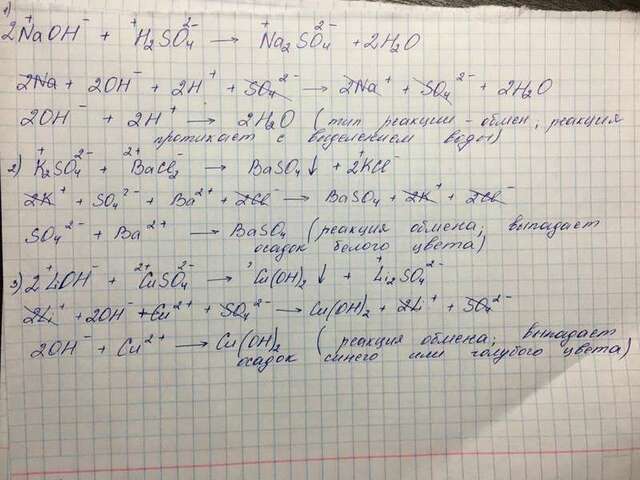 1)
2NaOH⁻ + ⁺H₂SO₄²⁻ → ⁺Na₂SO₄²⁻ + 2H₂O
2Na + 2OH⁻ + 2H⁺ + SO₄²⁻ → 2Na⁺ + SO₄²⁻ + 2H₂O
2OH⁻ + 2H⁺ → 2H₂O (тип реакции - обмен, реакция
протикает с выделением воды)
2) ⁺K₂SO₄²⁻ + ²⁺BaCl₂⁻ → BaSO₄↓ + 2⁺KCl⁻
2K⁺ + SO₄²⁻ + Ba²⁺ + 2Cl⁻ → BaSO₄ + 2K⁺ + 2Cl⁻
SO₄²⁻ + Ba²⁺ → BaSO₄ (реакция обмена, выпадает
осадок белого цвета)
3) 2⁺LiOH⁻ + ²⁺CuSO₄²⁻ → Cu(OH)₂↓ + ⁺Li₂SO₄²⁻
2Li⁺ + 2OH⁻ + Cu²⁺ + SO₄²⁻ → Cu(OH)₂ + 2Li⁺ + SO₄²⁻
2OH⁻ + Cu²⁺ → Cu(OH)₂ (реакция обмена, выпадает
осадок синего или голубого цвета)